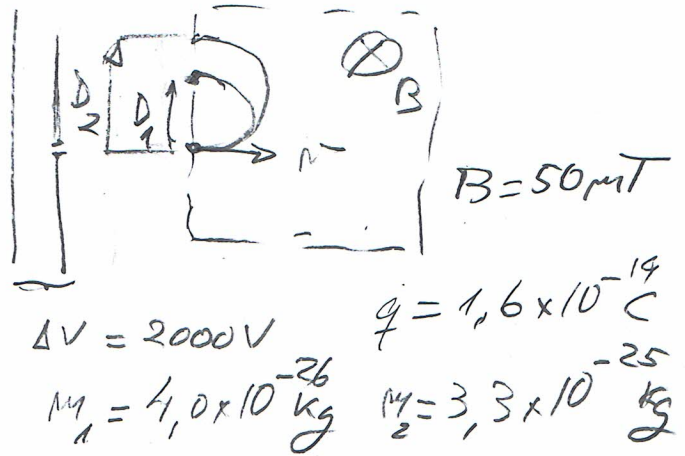 D₂ D₁ B
B = 50 μT
ΔV = 2000 V q = 1,6 × 10⁻¹⁹ C
m₁ = 4,0 × 10⁻²⁶ kg m₂ = 3,3 × 10⁻²⁵ kg